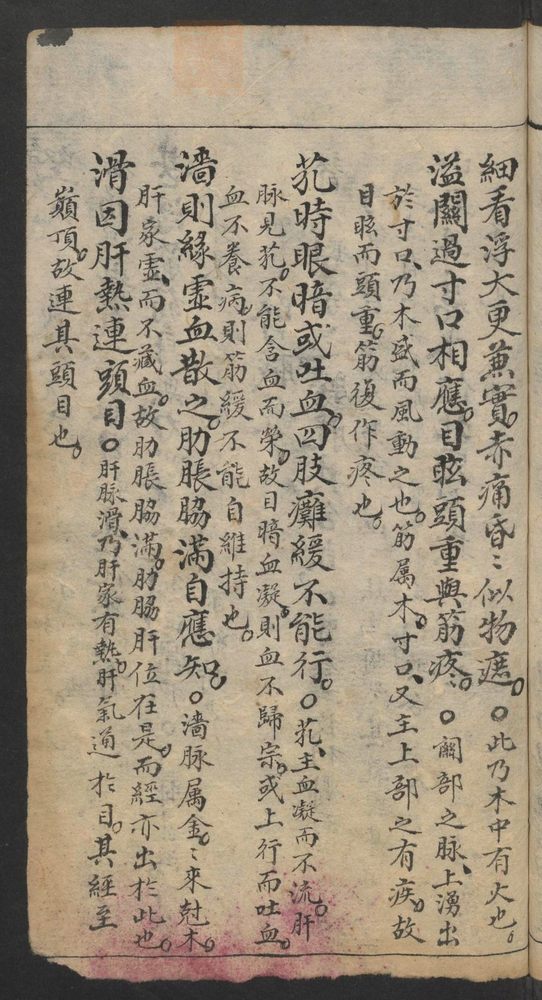 細看浮大更兼實赤痛昏〻似物遮。○此乃木中有火也。
溢關過寸口相應。目眩頭重與筋疼。○關部之脉、上湧出
於寸口、乃木盛而風動之也。筋属木、寸口、又主上部之有疾。故
目眩而頭重。筋復作疼也。
芤時眼暗或吐血。四肢癱緩不能行。○芤、主血凝而不流。肝
脉見芤。不能含血而榮。故目暗血凝。則血不歸宗。或上行而吐血。
血不養病。則筋緩不能自維持也。
濇則緣虛血散之。肋脹脇滿自應知。○濇脉属金。〻來尅木。
肝家虛。而不藏血。故肋脹脇滿。肋脇肝位在是。而經亦出於此也。
滑因肝熱連頭目。○肝脉滑、乃肝家有熱。肝氣通於目。其經至
巔頂。故連其頭目也。